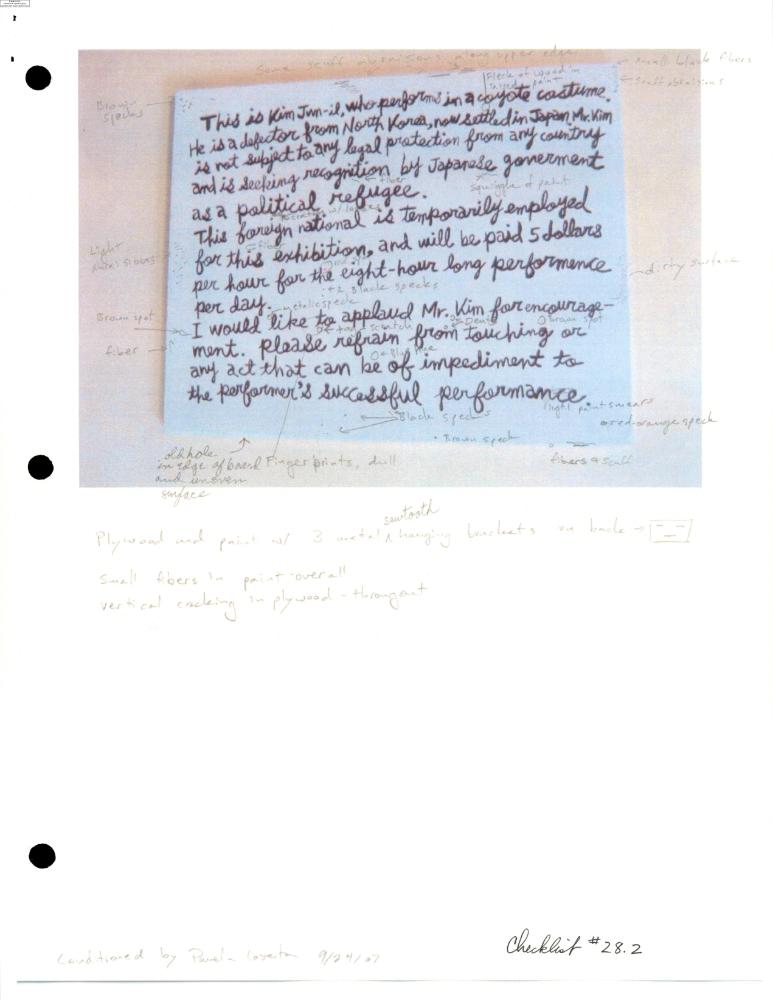 Some scuff abraisions along upper edge
small black fibers
Fleck of wood in
paint
Scuff abraisions
Brown
specks
This is Kim Jun-il, who performs in a coyote costume.
He is a defector from North Korea, now settled in Japan. Mr. Kim
is not subject to any legal protection from any country
and is seeking recognition by Japanese goverment
fiber
Squiggle of paint
as a political refugee.
This foreign national is temporarily employed
fiber
for this exhibition, and will be paid 5 dollars
Light
dirty surface
per hour for the eight-hour long performence
2 Black specks
per day.
metalic speck
I would like to applaud Mr. Kim for encourage-
Brown spot
scratch
Dent
Brown spot
ment. Please refrain from touching or
fiber
any act that can be of impediment to
the performer's successful performance.
light paint smears
Black specks
red-orange speck
Brown speck
old hole
in edge of board
and uneven
surface
Fingerprints, dull
fibers & scuff
sawtooth
Plywood and paint w/ 3 metal hanging brackets on back →
Small fibers in paint-overall
vertical cracking in plywood - throughout
Conditioned by 9/24/07
Checklist #28.2